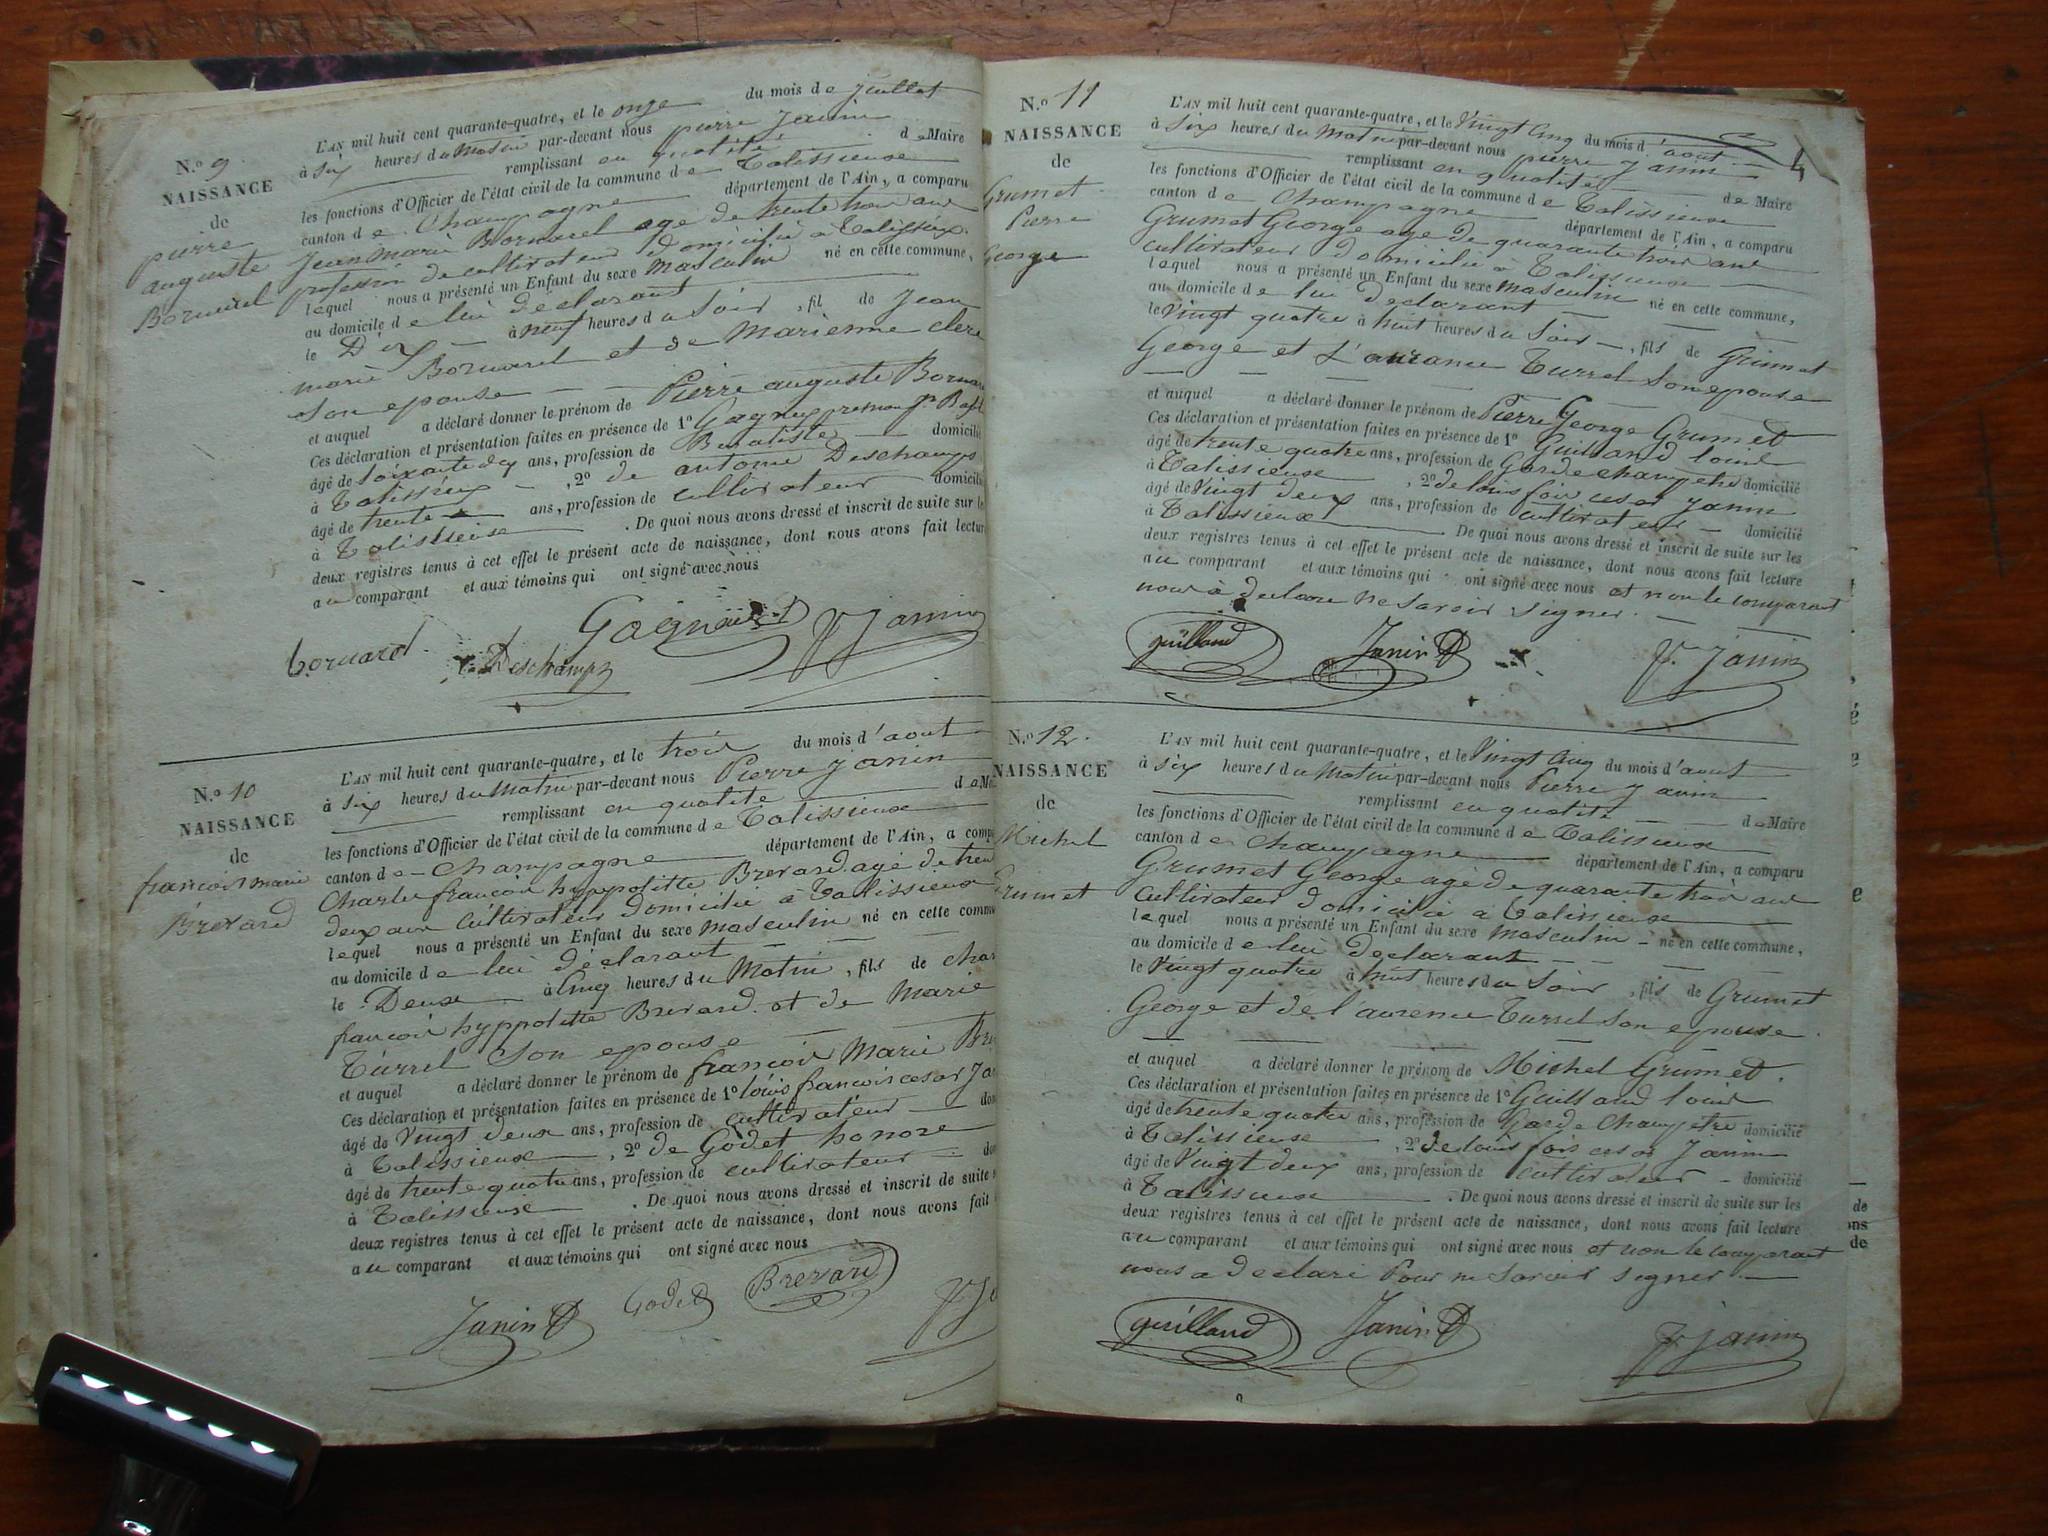 N.º 9
NAISSANCE
de
pierre
auguste
Bornarel
L'AN mil huit cent quarante-quatre, et le onze du mois de juillet
à six heures du matin par-devant nous pierre Janin
remplissant en qualité de Maire
les fonctions d'Officier de l'état civil de la commune de Talissieux
canton de Champagne département de l'Ain, a comparu
Jean Marie Bornarel age de trente trois ans
profession de cultivateur domicilié à Talissieux
lequel nous a présenté un Enfant du sexe masculin né en cette commune,
au domicile de lui déclarant
le Dix à neuf heures du soir, fil de Jean
marie Bornarel et de marienne clere
son epouse
et auquel a déclaré donner le prénom de Pierre auguste Bornar
Ces déclaration et présentation faites en présence de 1º Gagneux
âgé de soixante dix ans, profession de Buraliste domicilié
à Talissieux, 2º de antoine Deschamps
âgé de trente ans, profession de cultivateur domicilié
à Talissieux. De quoi nous avons dressé et inscrit de suite sur le
deux registres tenus à cet effet le présent acte de naissance, dont nous avons fait lecture
au comparant et aux témoins qui ont signé avec nous
bornard Deschamps Gagneux Pr Janin
N.º 10
NAISSANCE
de
francois marie
Brevard
L'AN mil huit cent quarante-quatre, et le trois du mois d'aout
à six heures du matin par-devant nous Pierre Janin
remplissant en qualité de M
les fonctions d'Officier de l'état civil de la commune de Talissieux
canton de Champagne département de l'Ain, a comp
Charles francois hyppolitte Brevard agé de tren
deux ans cultivateur domicilié à Talissieux
lequel nous a présenté un Enfant du sexe masculin né en cette commu
au domicile de lui déclarant
le Deux à Cinq heures du Matin, fils de char
francois hyppolitte Brevard et de Marie
Turrel son epouse
et auquel a déclaré donner le prénom de francois Marie Bre
Ces déclaration et présentation faites en présence de 1º louis francois cesar Ja
âgé de vingt deux ans, profession de cultivateur do
à Talissieux, 2º de Godet honore
âgé de trente quatre ans, profession de cultivateur do
à Talissieux. De quoi nous avons dressé et inscrit de suite s
deux registres tenus à cet effet le présent acte de naissance, dont nous avons fait
au comparant et aux témoins qui ont signé avec nous
Janin Godet Brevard Pr J
N.º 11
NAISSANCE
de
Grumet
Pierre
George
4
L'AN mil huit cent quarante-quatre, et le Vingt Cinq du mois d'aout
à six heures du Matin par-devant nous pierre Janin
remplissant en qualité de Maire
les fonctions d'Officier de l'état civil de la commune de Talissieux
canton de Champagne département de l'Ain, a comparu
Grumet George age de quarante trois ans
cultivateur domicilié à Talissieux
lequel nous a présenté un Enfant du sexe masculin né en cette commune,
au domicile de lui declarant
le Vingt quatre à huit heures du Soir, fils de Grumet
George et L'aurance Turrel Son epouse
et auquel a déclaré donner le prénom de Pierre George Grumet
Ces déclaration et présentation faites en présence de 1º Guilland louis
âgé de trente quatre ans, profession de Garde champetre domicilié
à Talissieux, 2º de louis fois cesar Janin
âgé de Vingt deux ans, profession de cultivateur domicilié
à Talissieux De quoi nous avons dressé et inscrit de suite sur les
deux registres tenus à cet effet le présent acte de naissance, dont nous avons fait lecture
au comparant et aux témoins qui ont signé avec nous et non le comparant
nous à declare ne savoir signer.
guilland Janin Pr Janin
N.º 12
NAISSANCE
de
Michel
Grumet
L'AN mil huit cent quarante-quatre, et le Vingt Cinq du mois d'aout
à six heures du Matin par-devant nous Pierre Janin
remplissant en qualité de Maire
les fonctions d'Officier de l'état civil de la commune de Talissieux
canton de Champagne département de l'Ain, a comparu
Grumet George agé de quarante trois ans
cultivateur domicilié à Talissieux
lequel nous a présenté un Enfant du sexe masculin né en cette commune,
au domicile de lui declarant
le Vingt quatre à huit heures du Soir, fils de Grumet
George et de l'aurence Turrel son epouse
et auquel a déclaré donner le prénom de Michel Grumet.
Ces déclaration et présentation faites en présence de 1º Guilland louis
âgé de trente quatre ans, profession de Garde Champetre domicilié
à Talissieux, 2º de louis fois cesar Janin
âgé de Vingt deux ans, profession de cultivateur domicilié
à Talissieux. De quoi nous avons dressé et inscrit de suite sur les
deux registres tenus à cet effet le présent acte de naissance, dont nous avons fait lecture
au comparant et aux témoins qui ont signé avec nous et non le comparant
nous a declaré Pour ne savoir signer
guilland Janin Pr Janin